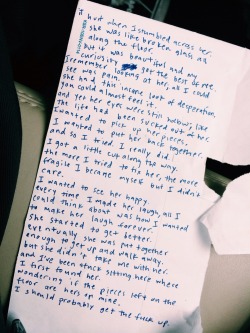 it, but when I stumbled across her.
she was like broken glass all
along the floor.
but it was beautiful and my
curiosity got the best of me.
I remember looking at her, all I could
see was pain.
she had this insane look of desperation.
you could almost feel it.
and yet her eyes were still hollow, like
the life had been sucked out of her.
I wanted to pick up her pieces.
and put her back together.
and so I tried, I really did.
I got a little cut along the way.
the more I tried to fix her, the more
fragile I became myself but I didn't
care.
I wanted to see her happy.
every time I made her laugh, all I
could think about was how I wanted
to make her laugh forever.
She started to get better.
eventually she was put together
enough to get up and walk away.
but she didn't take me with her.
and I've been stuck sitting here where
I first found her.
wondering if the pieces left on the
floor are hers or mine.
I should probably get the fuck up.